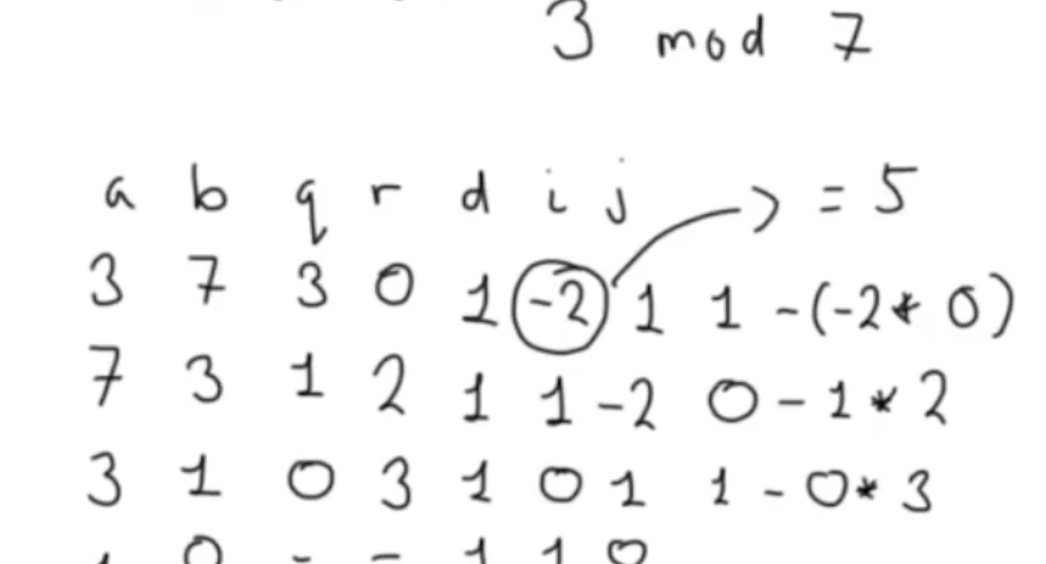 3 mod 7
a b q r d i j = 5
3 7 3 0 1 -2 1 1 -(-2* 0)
7 3 1 2 1 1 -2 0 - 1 * 2
3 1 0 3 1 0 1 1 - 0* 3
1 0 - - 1 1 0